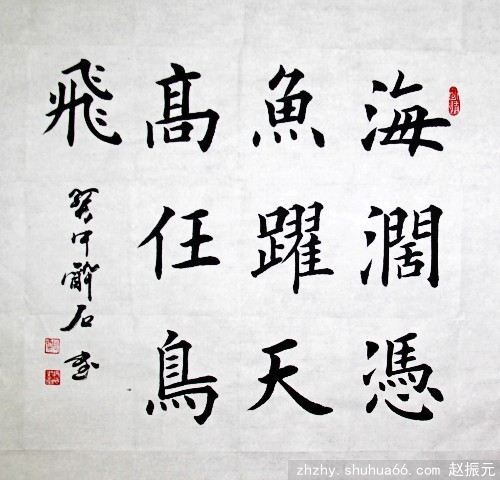 海濶憑
魚躍天
髙任鳥
飛
醉石書
zhzhy.shuhua66.com 赵振元